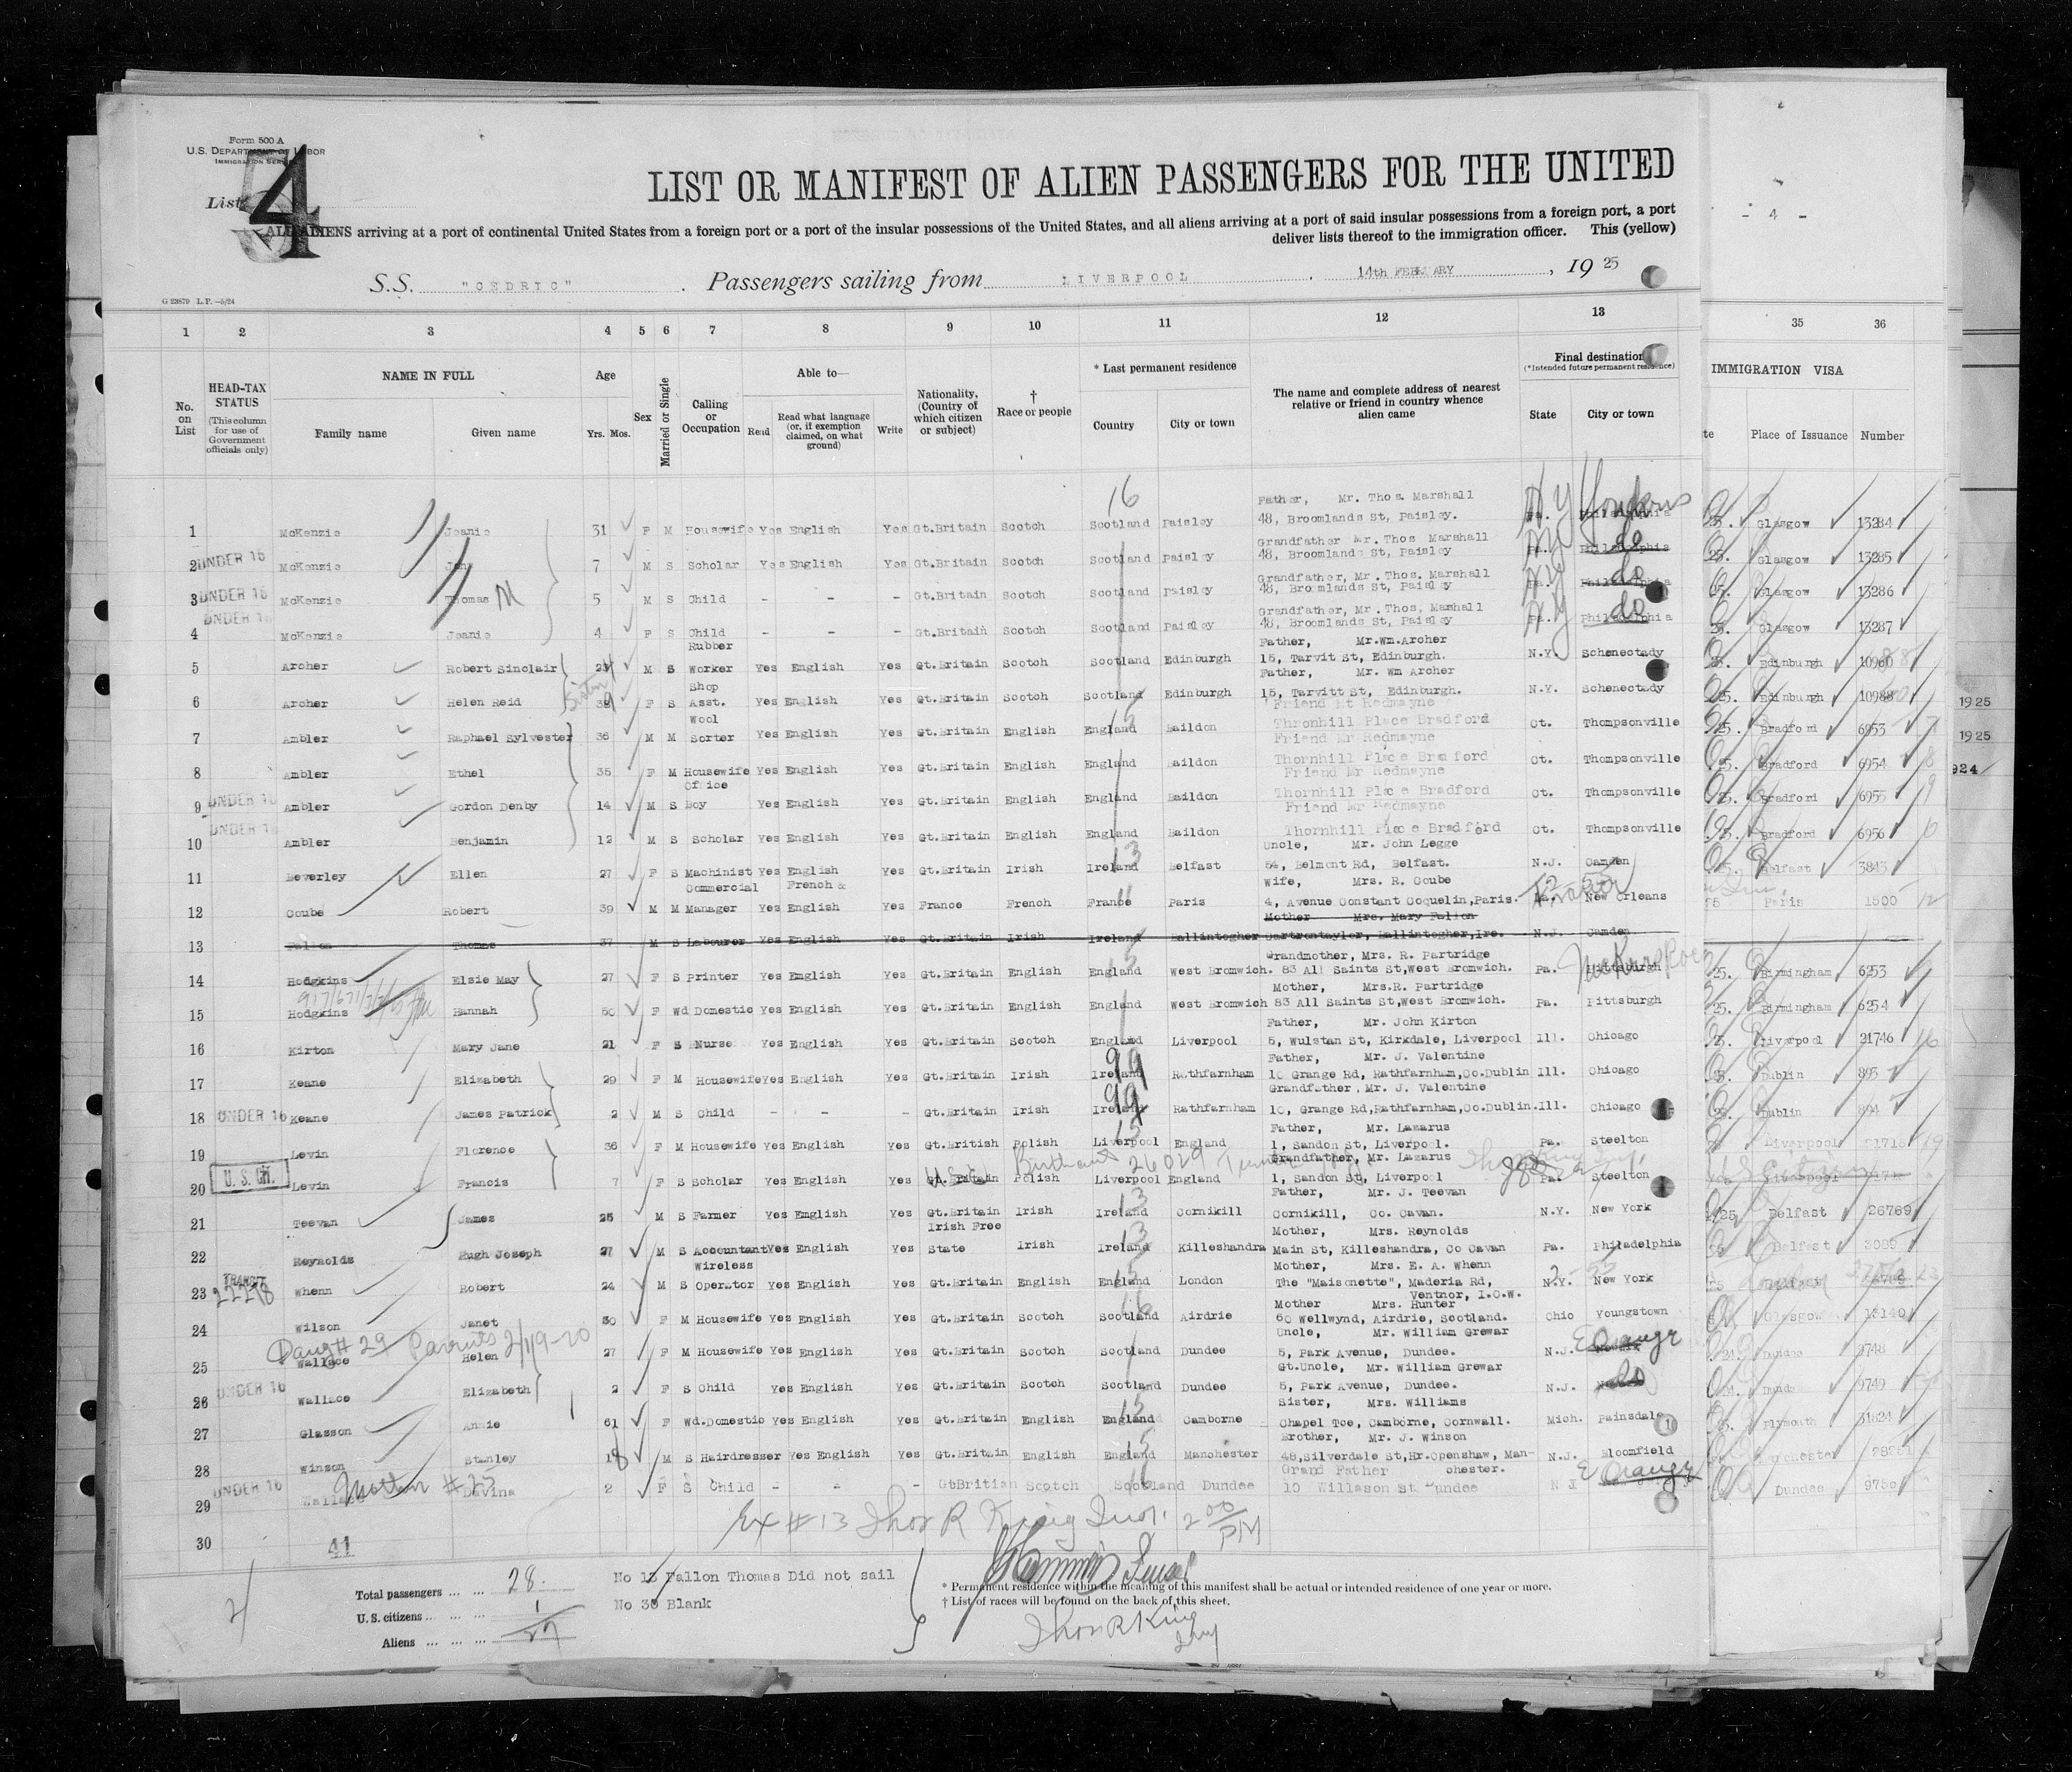 Form 500 A
U.S. DEPARTMENT OF LABOR
IMMIGRATION SERVICE
List 4
LIST OR MANIFEST OF ALIEN PASSENGERS FOR THE UNITED
ALL ALIENS arriving at a port of continental United States from a foreign port or a port of the insular possessions of the United States, and all aliens arriving at a port of said insular possessions from a foreign port, a port
deliver lists thereof to the immigration officer. This (yellow)
- 4 -
S.S. "CEDRIC". Passengers sailing from LIVERPOOL. 14th FEBRUARY, 1925
G 23879 L.P.—5/24
1 2 3 4 5 6 7 8 9 10 11 12 13 35 36
No. on List
HEAD-TAX STATUS (This column for use of Government officials only)
NAME IN FULL
Family name Given name
Age
Yrs. Mos.
Sex
Married or Single
Calling or Occupation
Able to—
Read Read what language (or, if exemption claimed, on what ground) Write
Nationality, (Country of which citizen or subject)
† Race or people
* Last permanent residence
Country City or town
The name and complete address of nearest relative or friend in country whence alien came
Final destination
(*Intended future permanent residence)
State City or town
IMMIGRATION VISA
Place of Issuance Number
16
Father, Mr. Thos. Marshall
1 McKenzie Jeanie 31 F M Housewife Yes English Yes Gt.Britain Scotch Scotland Paisley 48, Broomlands St, Paisley. Pa. Philadelphia N Y Yonkers 25. Glasgow 13284
Grandfather Mr. Thos Marshall
2 UNDER 16 McKenzie 7 M S Scholar Yes English Yes Gt.Britain Scotch Scotland Paisley 48, Broomlands St, Paisley Pa. Philadelphia NY do 25. Glasgow 13285
Grandfather, Mr. Thos. Marshall
3 UNDER 16 McKenzie Thomas M 5 M S Child - - - Gt.Britain Scotch Scotland Paisley 48, Broomlands St, Paisley Pa. Philadelphia NY do 25. Glasgow 13286
Grandfather, Mr. Thos, Marshall
4 UNDER 16 McKenzie Jeanie 4 F S Child - - - Gt.Britain Scotch Scotland Paisley 48, Broomlands St, Paisley Pa. Philadelphia NY do 25. Glasgow 13287
Rubber Father, Mr.Wm.Archer
5 Archer Robert Sinclair M S Worker Yes English Yes Gt.Britain Scotch Scotland Edinburgh 15, Tarvit St, Edinburgh. N.Y. Schenectady 25. Edinburgh
Shop Father, Mr. Wm Archer
6 Archer Helen Reid Sister F S Asst. Yes English Yes Gt.Britain Scotch Scotland Edinburgh 15, Tarvitt St, Edinburgh. N.Y. Schenectady 25. Edinburgh 10988 1925
Wool Friend Mr Redmayne
7 Ambler Raphael Sylvester 36 M M Sorter Yes English Yes Gt.Britain English England Baildon Thronhill Place Bradford Ct. Thompsonville 25. Bradford 6953 1925
Friend Mr Redmayne
8 Ambler Ethel 35 F M Housewife Yes English Yes Gt.Britain English England Baildon Thornhill Place Bradford Ct. Thompsonville 25. Bradford 6954 924
Office Friend Mr Redmayne
9 UNDER 16 Ambler Gordon Denby 14 M S Boy Yes English Yes Gt.Britain English England Baildon Thornhill Place Bradford Ct. Thompsonville 25. Bradford 6955
Friend Mr Redmayne
10 UNDER 16 Ambler Benjamin 12 M S Scholar Yes English Yes Gt.Britain English England Baildon Thornhill Place Bradford Ct. Thompsonville 25. Bradford 6956
Uncle, Mr. John Legge
11 Beverley Ellen 27 F S Machinist Yes English Yes Gt.Britain Irish Ireland Belfast 54, Belmont Rd, Belfast. N.J. Camden Belfast 3843
Commercial French & Wife, Mrs. R. Coube
12 Coube Robert 39 M M Manager Yes English Yes France French France Paris 4, Avenue Constant Coquelin,Paris. La. New Orleans Paris 1500 12
Mother Mrs. Mary Fallon
13 Fallon Thomas 37 M S Labourer Yes English Yes Gt.Britain Irish Ireland Ballintogher Cartrontaylor, Ballintogher,Ire. N.J. Camden
Grandmother, Mrs. R. Partridge
14 Hodgkins Elsie May 27 F S Printer Yes English Yes Gt.Britain English England West Bromwich. 83 All Saints St,West Bromwich. Pa. Pittsburgh 25. Birmingham 6253
Mother, Mrs.R. Partridge
15 Hodgkins Hannah 50 F Wd Domestic Yes English Yes Gt.Britain English England West Bromwich 83 All Saints St,West Bromwich. Pa. Pittsburgh 25. Birmingham 6254
Father, Mr. John Kirton
16 Kirton Mary Jane 21 F S Nurse Yes English Yes Gt.Britain Scotch England Liverpool 5, Wulstan St, Kirkdale, Liverpool Ill. Chicago 25. Liverpool 21746 16
Father, Mr. J. Valentine
17 Keane Elizabeth 29 F M Housewife Yes English Yes Gt.Britain Irish Ireland 99 Rathfarnham 10 Grange Rd, Rathfarnham,Co.Dublin Ill. Chicago 25. Dublin 893
Grandfather, Mr. J. Valentine
18 UNDER 16 Keane James Patrick 2 M S Child - - - Gt.Britain Irish Ireland 99 Rathfarnham 10, Grange Rd,Rathfarnham,Co.Dublin. Ill. Chicago 25. Dublin 894
Father, Mr. Lazarus
19 Levin Florence 36 F M Housewife Yes English Yes Gt.British Polish Liverpool England 1, Sandon St, Liverpool. Pa. Steelton Liverpool 21715 19
Grandfather, Mr. Lazarus
20 U. S. CIT. Levin Francis 7 F S Scholar Yes English Yes Gt.Britain Polish Liverpool England 1, Sandon St, Liverpool Pa. Steelton Liverpool
Father, Mr. J. Teevan
21 Teevan James 25 M S Farmer Yes English Yes Gt.Britain Irish Ireland Cornikill Cornikill, Co. Cavan. N.Y. New York 25 Belfast 26769
Irish Free Mother, Mrs. Reynolds
22 Reynolds Hugh Joseph 27 M S Accountant Yes English Yes State Irish Ireland Killeshandra Main St, Killeshandra, Co Cavan Pa. Philadelphia Belfast 3089
Wireless Mother, Mrs. E. A. Whenn
23 TRANSIT Whenn Robert 24 M S Operator Yes English Yes Gt.Britain English England London The "Maisonette", Maderia Rd, N.Y. New York
Ventnor, I.O.W.
Mother Mrs. Hunter
24 Wilson Janet 30 F M Housewife Yes English Yes Gt.Britain Scotch Scotland Airdrie 60 Wellwynd, Airdrie, Scotland. Ohio Youngstown Glasgow 13140
Daug # 29 Parents Uncle, Mr. William Grewar
25 Wallace Helen 27 F M Housewife Yes English Yes Gt.Britain Scotch Scotland Dundee 5, Park Avenue, Dundee. N.J. E Orange Dundee 9748
Gt.Uncle, Mr. William Grewar
26 UNDER 16 Wallace Elizabeth 2 F S Child Yes English Yes Gt.Britain Scotch Scotland Dundee 5, Park Avenue, Dundee. N.J. do Dundee 9749
Sister, Mrs. Williams
27 Glasson Annie 61 F Wd.Domestic Yes English Yes Gt.Britain English England Camborne Chapel Tce, Camborne, Cornwall. Mich. Painsdale Plymouth 31824
Brother, Mr. J. Winson
28 Winson Stanley 18 M S Hairdresser Yes English Yes Gt.Britain English England Manchester 48,Silverdale St,Hr.Openshaw, Man- N.J. Bloomfield Manchester
Grand Father chester.
29 UNDER 16 Wallace Mother #25 Davina 2 F S Child - - - GtBritian Scotch Scotland Dundee 10 Willason St Dundee N J E Orange Dundee 9750
30
41
Ex # 13 Thos R King Insp. 2 00 PM
Total passengers ... ... 28.
U.S. citizens ... ... 1
Aliens ... ... ... 27
No 13 Fallon Thomas Did not sail
No 30 Blank
* Permanent residence within the meaning of this manifest shall be actual or intended residence of one year or more.
† List of races will be found on the back of this sheet.
Thos R King
Insp